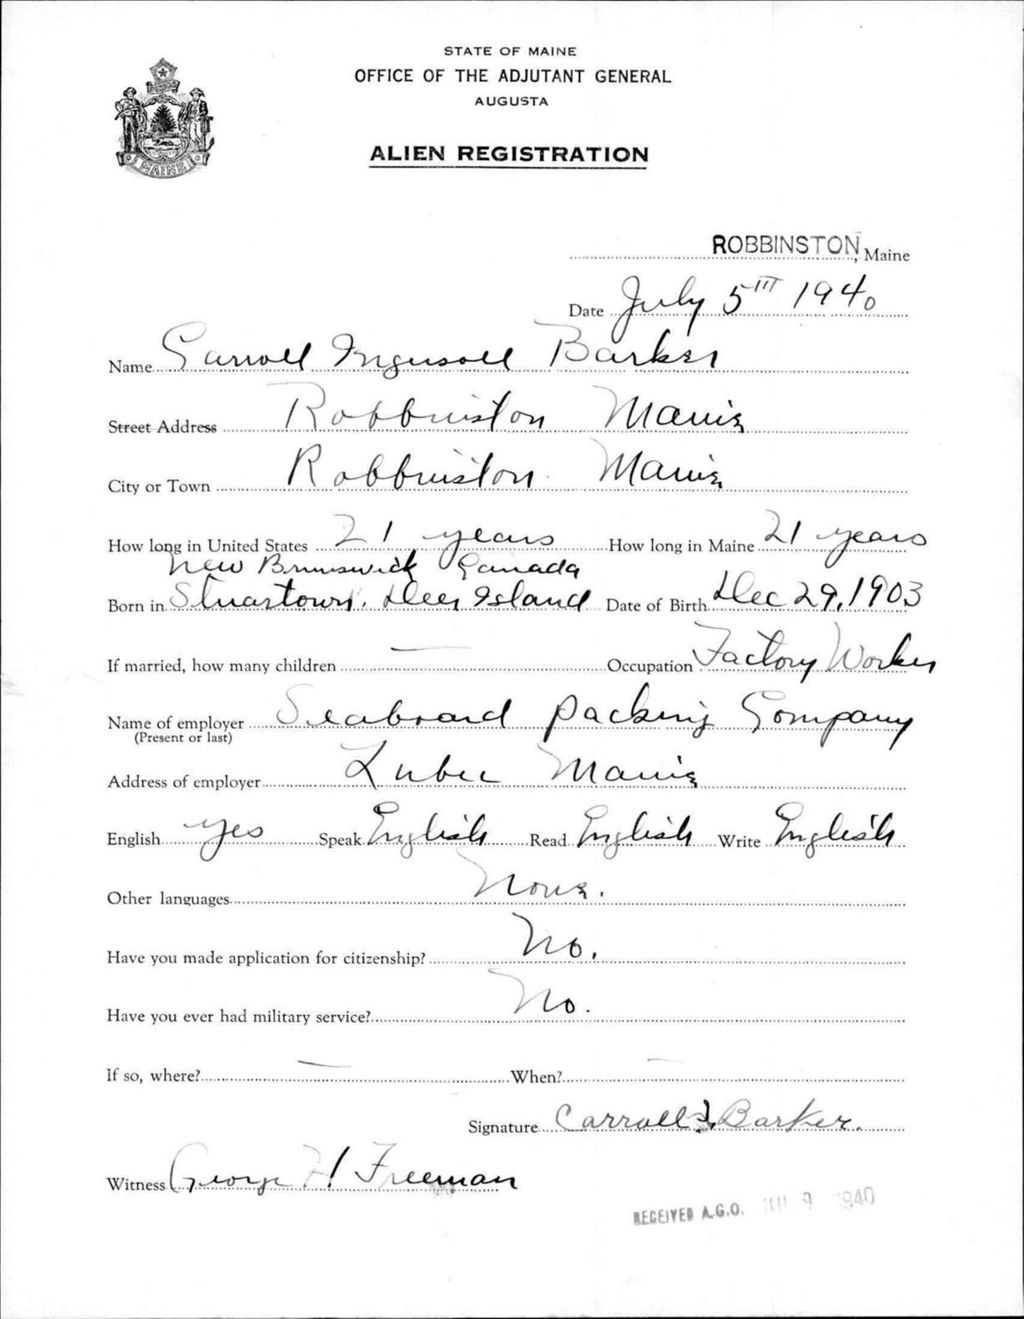 STATE OF MAINE
OFFICE OF THE ADJUTANT GENERAL
AUGUSTA
ALIEN REGISTRATION
MAINE
ROBBINSTON, Maine
Date July 5th 1940
Name Carroll Ingersoll Barker
Street Address Robbinston Maine
City or Town Robbinston Maine
How long in United States 21 years How long in Maine 21 years
New Brunswick Canada
Born in Stuartown, Deer Island Date of Birth Dec 29, 1903
If married, how many children — Occupation Factory Worker
Name of employer Seaboard Packing Company
(Present or last)
Address of employer Lubec Maine
English yes Speak English Read English Write English
Other languages None.
Have you made application for citizenship? No.
Have you ever had military service? No.
If so, where? — When? —
Signature Carroll I. Barker.
Witness George H Freeman
RECEIVED A.G.O. JUL 9 1940